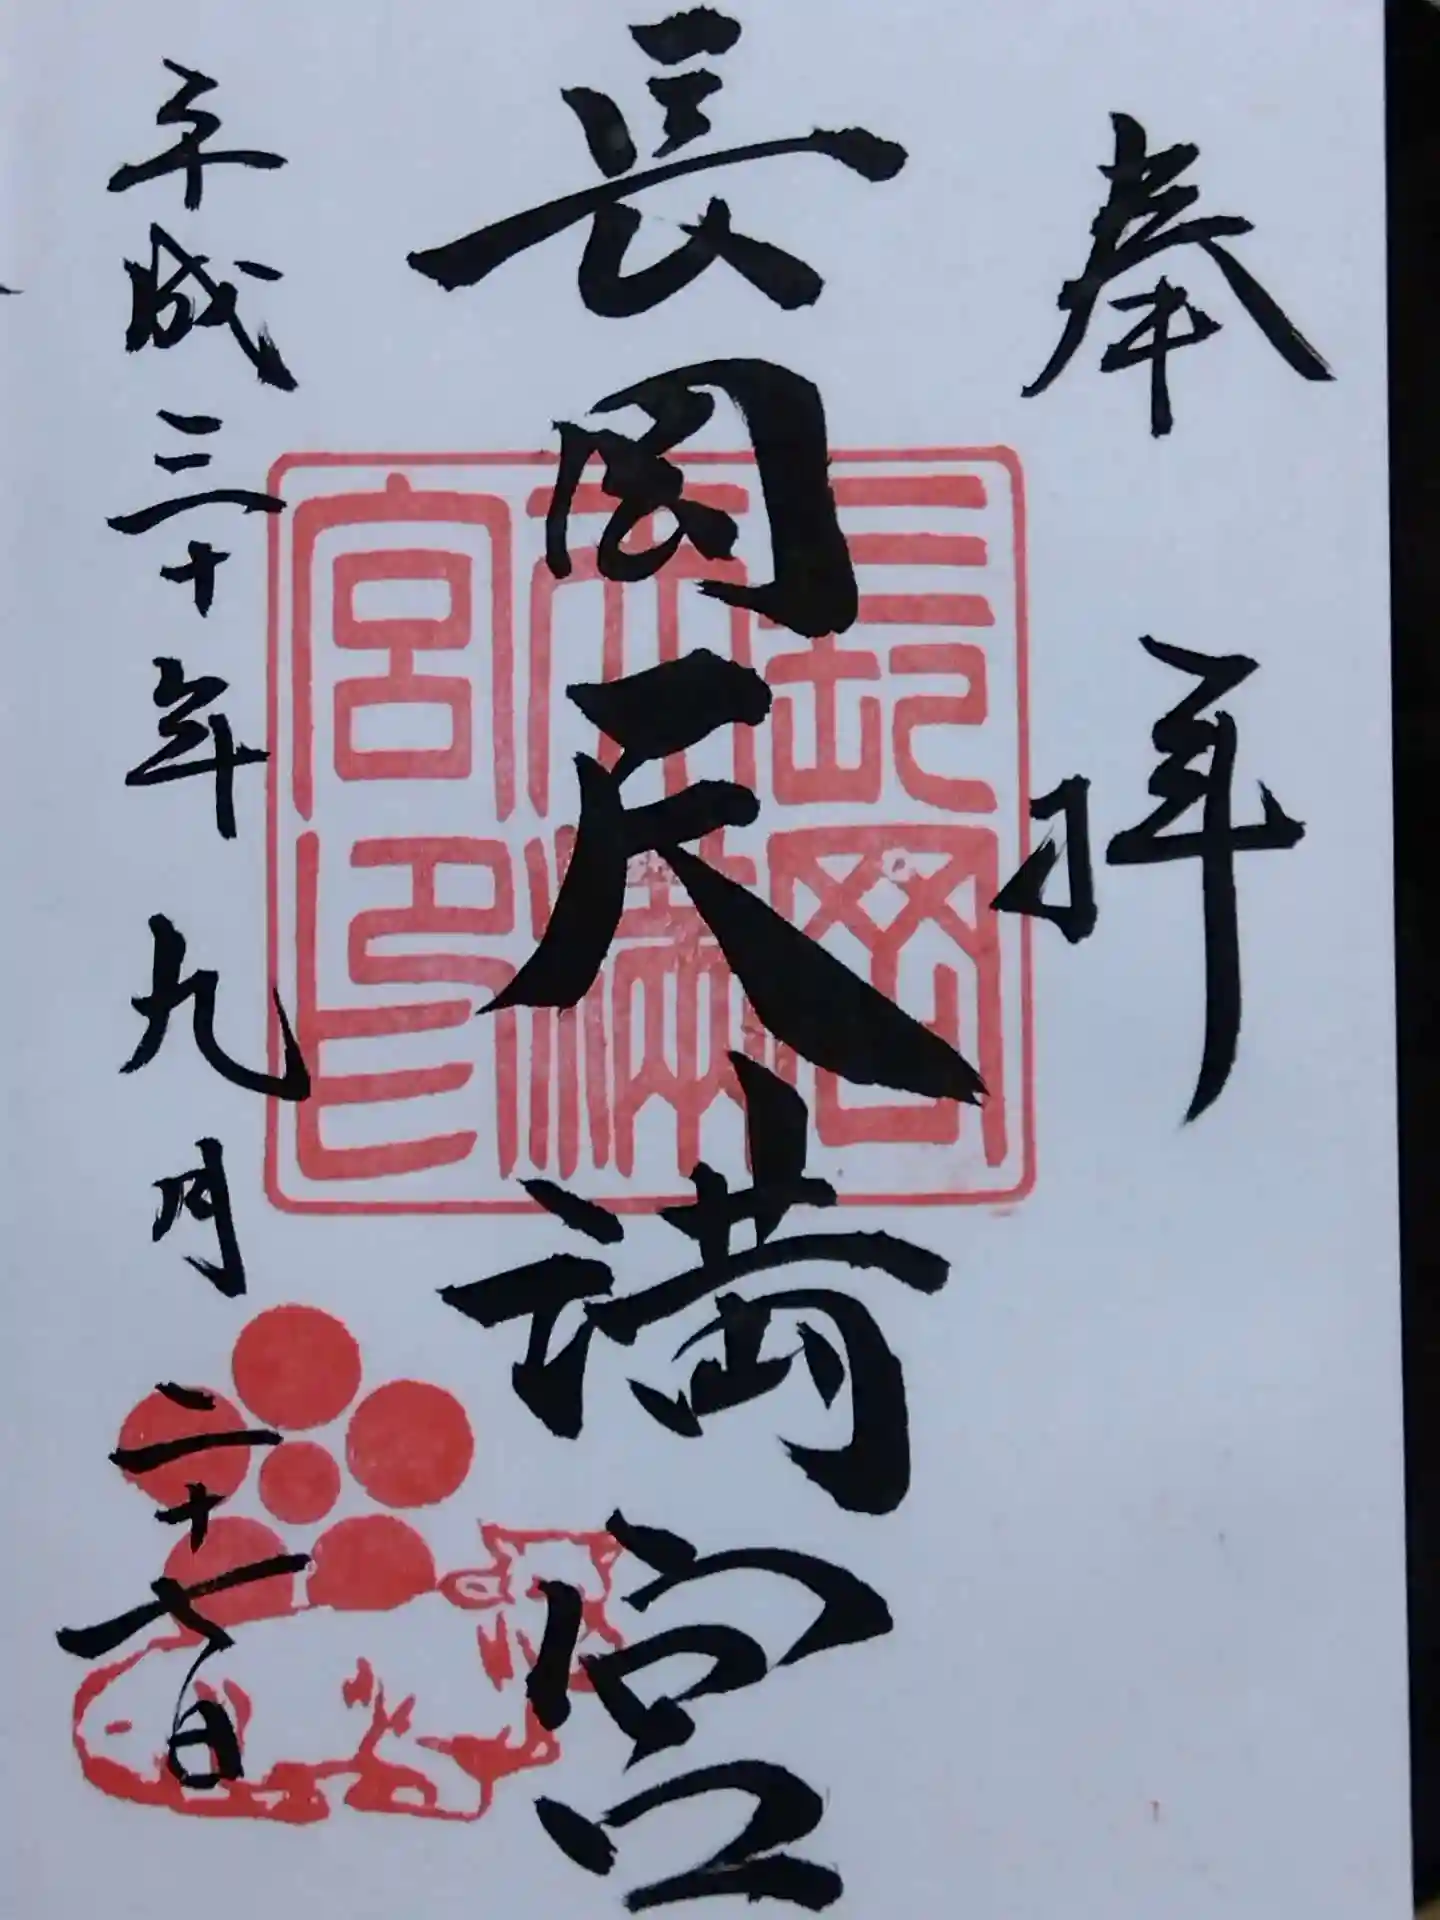 奉拝
長岡天満宮
長岡天満宮印
平成三十年九月二十七日